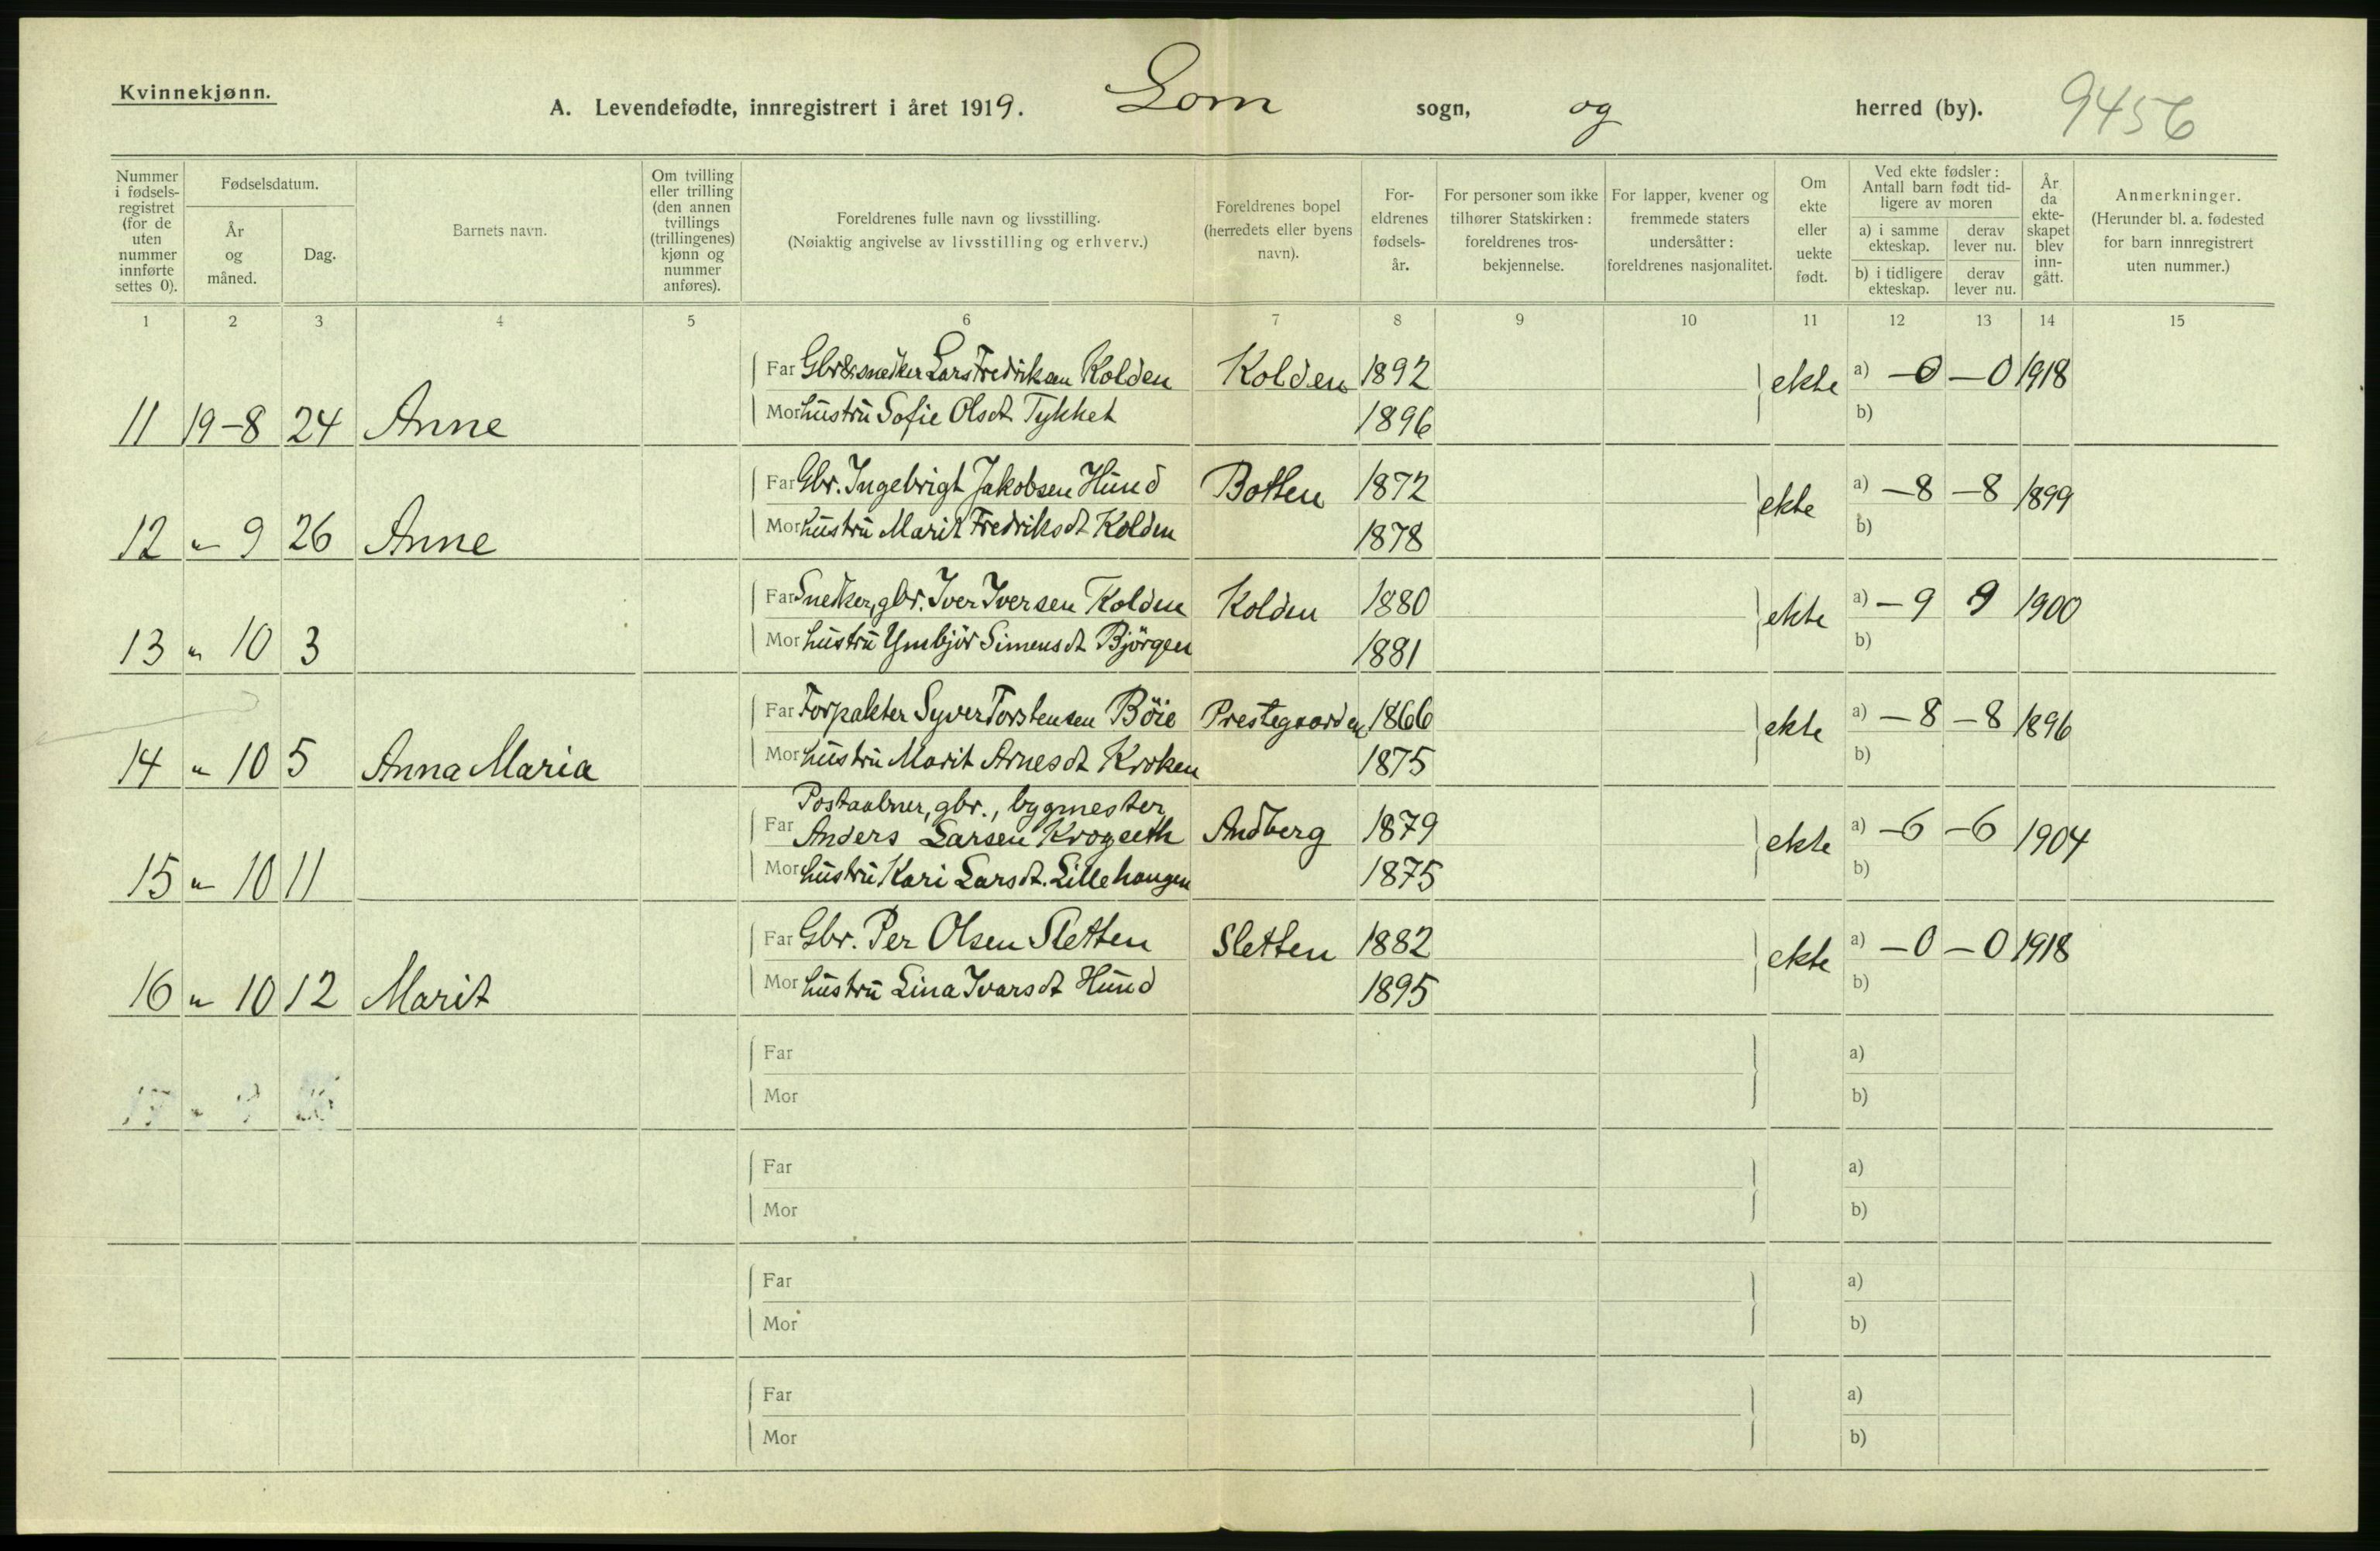 Kvinnekjønn.
A. Levendefødte, innregistrert i året 1919. Lom sogn, og herred (by). 9456
Nummer i fødsels-registret (for de uten nummer innførte settes 0).
Fødselsdatum.
År og måned.
Dag.
Barnets navn.
Om tvilling eller trilling (den annen tvillings (trillingenes) kjønn og nummer anføres).
Foreldrenes fulle navn og livsstilling.
(Nøiaktig angivelse av livsstilling og erhverv.)
Foreldrenes bopel (herredets eller byens navn).
For-eldrenes fødsels-år.
For personer som ikke tilhører Statskirken: foreldrenes tros-bekjennelse.
For lapper, kvener og fremmede staters undersåtter: foreldrenes nasjonalitet.
Om ekte eller uekte født.
Ved ekte fødsler: Antall barn født tid-ligere av moren
a) i samme ekteskap.
derav lever nu.
b) i tidligere ekteskap.
derav lever nu.
År da ekte-skapet blev inn-gått.
Anmerkninger.
(Herunder bl. a. fødested for barn innregistrert uten nummer.)
1 2 3 4 5 6 7 8 9 10 11 12 13 14 15
Far Gbr & snedker Lars Fredriksen Kolden Kolden 1892 ekte a) -0 -0 1918
11 19-8 24 Anne Mor hustru Sofie Olsdt Tykket 1896 b)
Far Gbr. Ingebrigt Jakobsen Hund Botten 1872 ekte a) -8 -8 1899
12 " 9 26 Anne Mor hustru Marit Fredriksdt Kolden 1878 b)
Far Snedker, gbr. Iver Iversen Kolden Kolden 1880 ekte a) -9 9 1900
13 " 10 3 Mor hustru Ymbjör Simensdt Björgen 1881 b)
Far Forpakter Syver Torstensen Böie Prestegaarden 1866 ekte a) -8 -8 1896
14 " 10 5 Anna Maria Mor hustru Marit Arnesdt Kroken 1875 b)
Postaabner, gbr., bygmester
Far Anders Larsen Krogseth Andberg 1879 ekte a) -6 -6 1904
15 " 10 11 Mor hustru Kari Larsdt. Lillehaugen 1875 b)
Far Gbr. Per Olsen Sletten Sletten 1882 ekte a) -0 -0 1918
16 " 10 12 Marit Mor hustru Lina Ivarsdt Hund 1895 b)
Far a)
17 " 9 Mor b)
Far a)
Mor b)
Far a)
Mor b)
Far a)
Mor b)